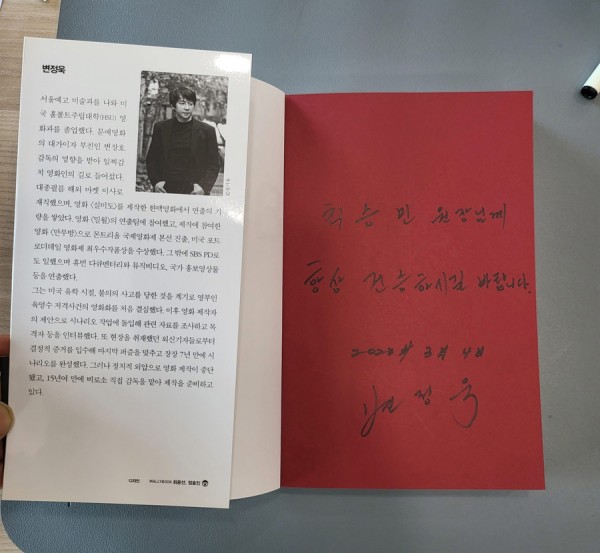 변정욱
서울예고 미술과를 나와 미
국 훔볼트주립대학(HSU) 영
화과를 졸업했다. 문예영화
의 대가이자 부친인 변장호
감독의 영향을 받아 일찌감
치 영화인의 길로 들어섰다.
대종필름 해외 마켓 이사로
재직했으며, 영화 〈실미도〉를 제작한 한맥영화에서 연출의 기
량을 쌓았다. 영화 〈밀월〉의 연출팀에 참여했고, 제작에 참여한
영화 〈만무방〉으로 몬트리올 국제영화제 본선 진출, 미국 포트
로더데일 영화제 최우수작품상을 수상했다. 그 밖에 SBS PD로
도 일했으며 휴먼 다큐멘터리와 뮤직비디오, 국가 홍보영상물
등을 연출했다.
그는 미국 유학 시절, 불의의 사고를 당한 것을 계기로 영부인
육영수 저격사건의 영화화를 처음 결심했다. 이후 영화 제작자
의 제안으로 시나리오 작업에 돌입해 관련 자료를 조사하고 목
격자 등을 인터뷰했다. 또 현장을 취재했던 외신기자들로부터
결정적 증거를 입수해 마지막 퍼즐을 맞추고 장장 7년 만에 시
나리오를 완성했다. 그러나 정치적 외압으로 영화 제작이 중단
됐고, 15년여 만에 비로소 직접 감독을 맡아 제작을 준비하고
있다.
디자인 최윤선, 정효진
최승민 원장님께
항상 건승하시길 바랍니다.
변정욱